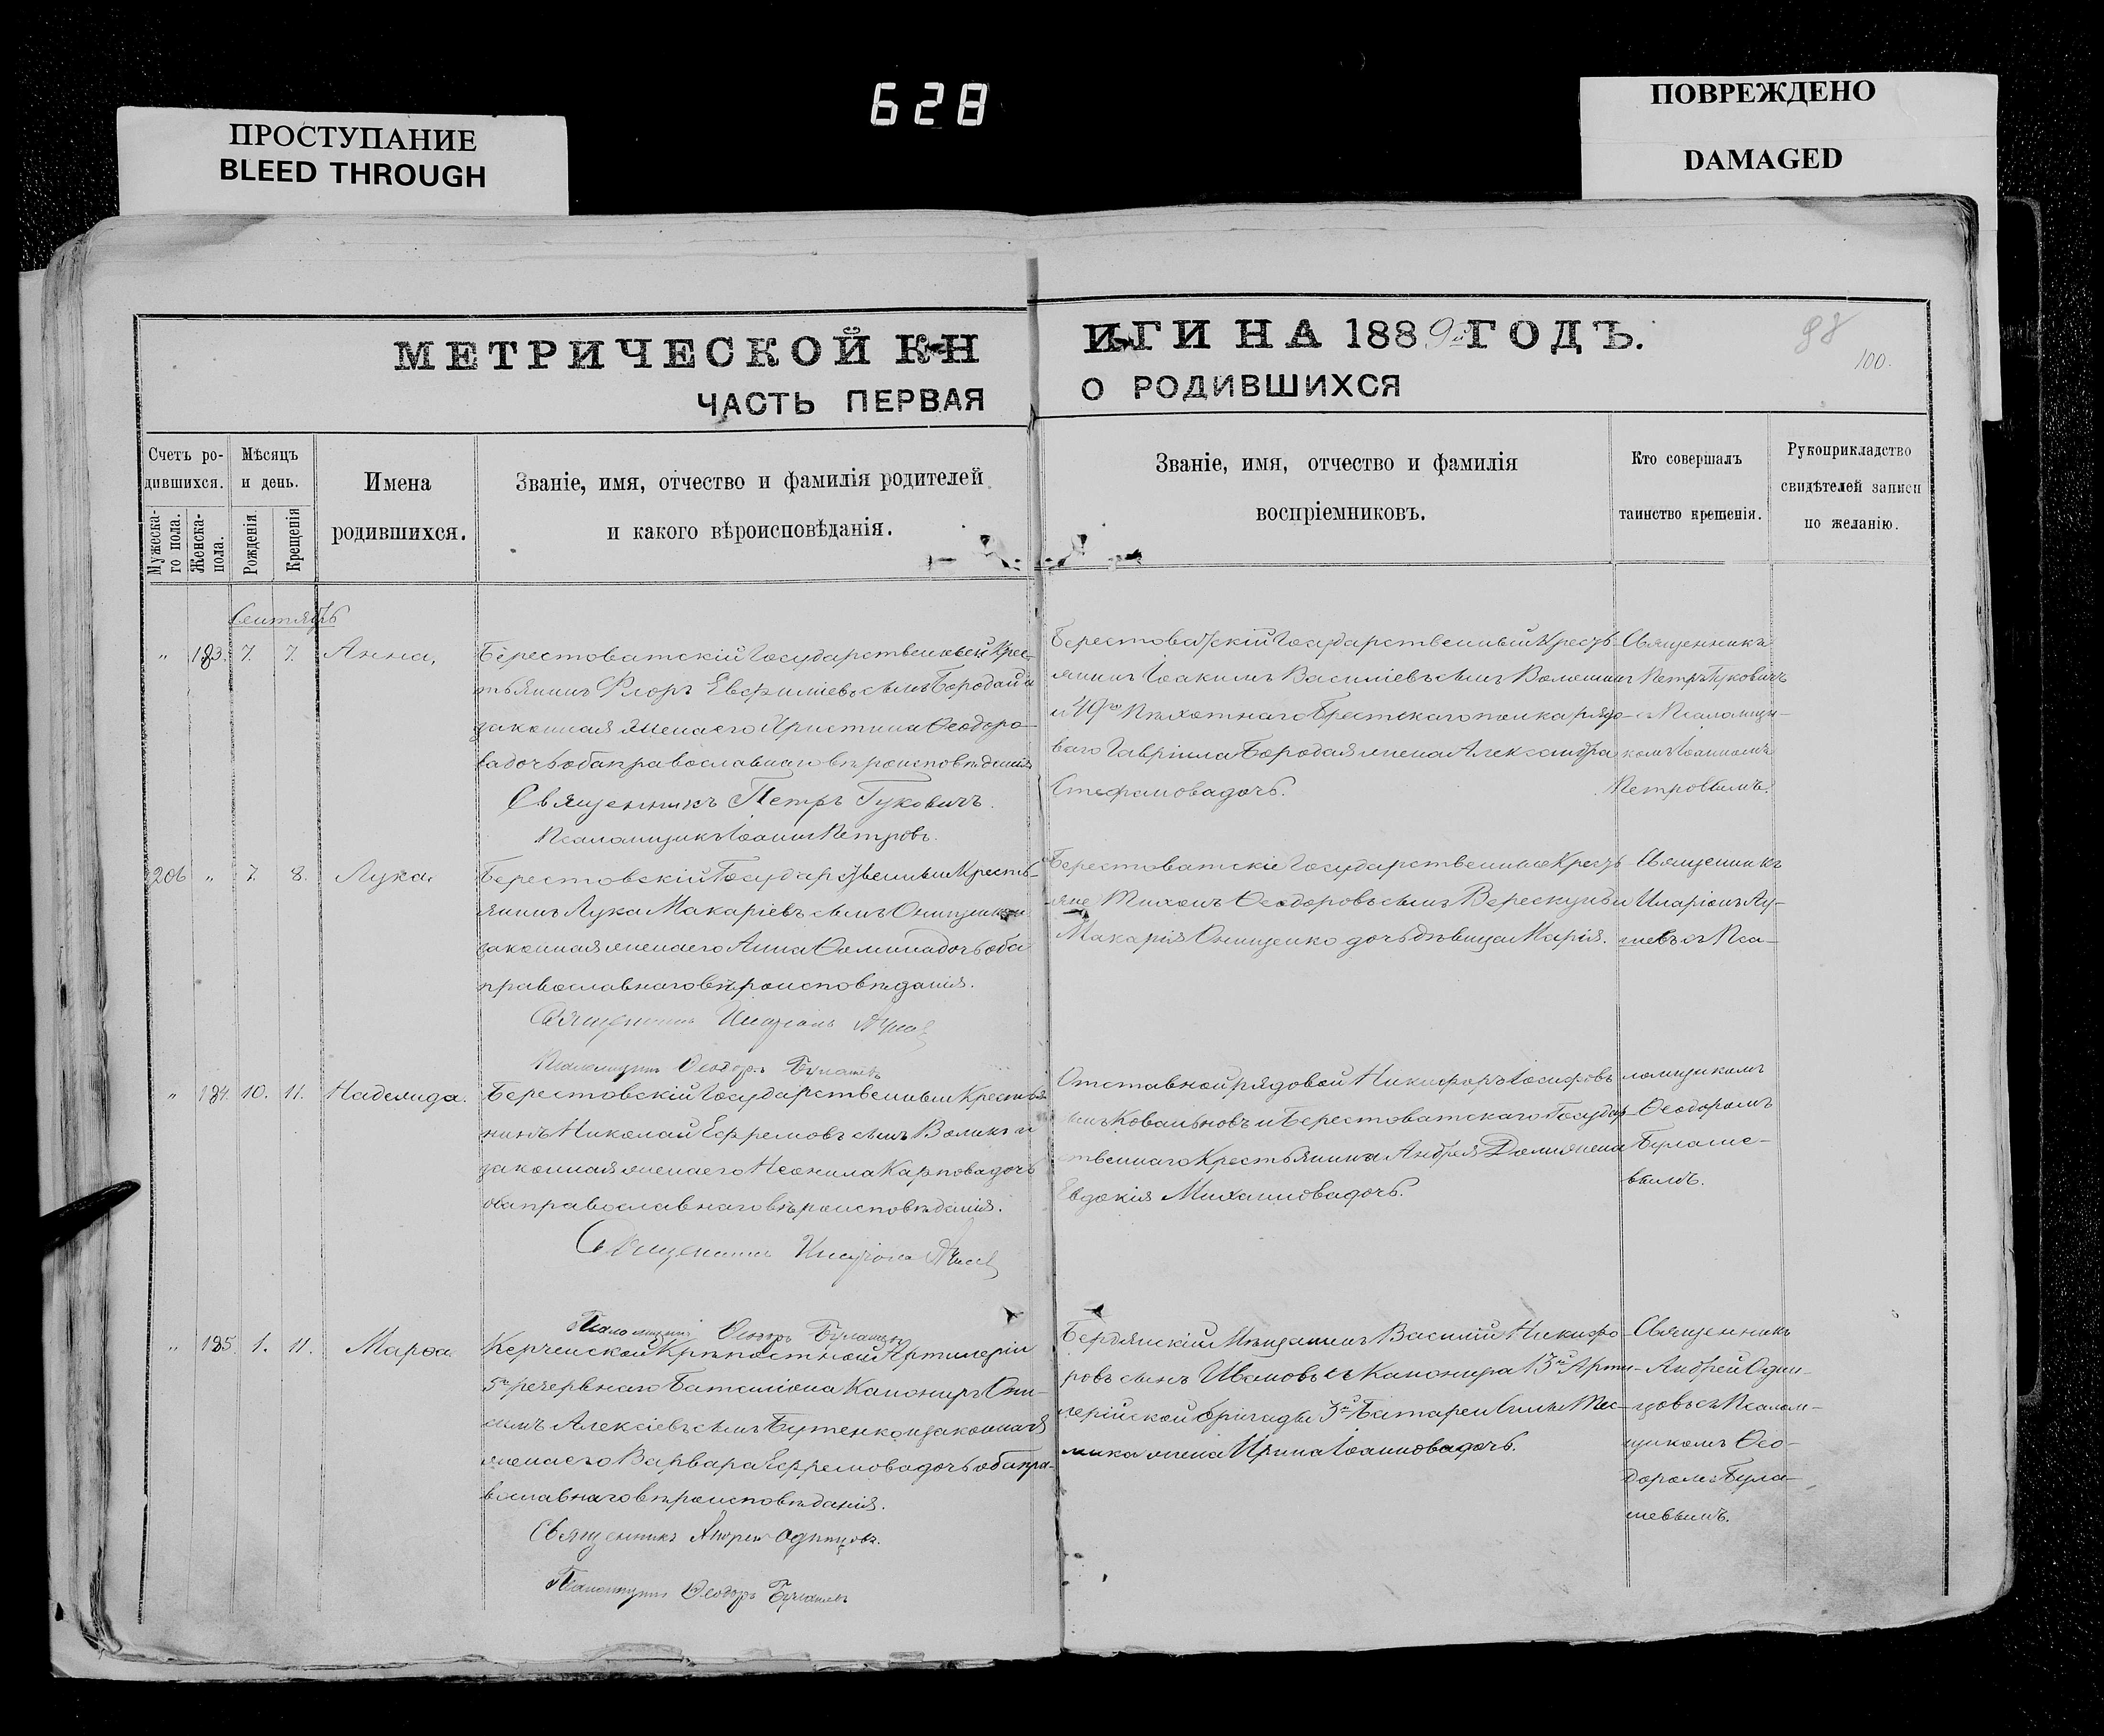 628
ПРОСТУПАНИЕ
BLEED THROUGH
ПОВРЕЖДЕНО
DAMAGED
МЕТРИЧЕСКОЙ КН
ИГИ НА 1889й ГОДЪ.
98
100.
ЧАСТЬ ПЕРВАЯ
О РОДИВШИХСЯ
Счетъ ро-
дившихся.
Мужеска-
го пола.
Женска-
пола.
Мѣсяцъ
и день.
Рожденія.
Крещенія
Имена
родившихся.
Званіе, имя, отчество и фамилія родителей
и какого вѣроисповѣданія.
Званіе, имя, отчество и фамилія
воспріемниковъ.
Кто совершалъ
таинство крещенія.
Рукоприкладство
свидѣтелей записи
по желанію.
Сентябрь
" 183. 7. 7. Анна,
Берестоватскій Государственный Крес-
тьянинъ Флоръ Евфиміевъ сынъ Бородай и
законная жена его Христина Ѳеодоро-
ва дочь оба православнаго вѣроисповѣданія
Священникъ Петръ Гуковичъ.
Псаломщикъ Іоаннъ Петровъ.
Берестоватскій Государственный Кресть-
янинъ Іоакимъ Василіевъ сынъ Волошинъ
и 49го Пѣхотнаго Брестскаго полка рядо-
ваго Гавріила Бородая жена Александра
Стефанова дочь.
Священникъ
Петръ Гуковичъ
съ Псаломщи-
комъ Іоанномъ
Петровымъ.
206 " 7. 8. Лука.
Берестовскій Государственный Кресть-
янинъ Лука Макаріевъ сынъ Онищенко и
законная жена его Анна Ѳомина дочь оба
православнаго вѣроисповѣданія.
Священникъ Иларіонъ
Псаломщикъ Ѳеодоръ Булашевъ
Берестоватскіе Государственные Кресть-
яне Тихонъ Ѳеодоровъ сынъ Верескунъ и
Макарія Онищенко дочь дѣвица Марія.
Священникъ
Иларіонъ Лу-
шевъ съ Пса-
" 184. 10. 11. Надежда.
Берестовскій Государственный Крестья-
нинъ Николай Ефремовъ сынъ Воликъ и
законная жена его Неонила Карпова дочь
оба православнаго вѣроисповѣданія.
Священникъ Иларіонъ
Псаломщикъ Ѳеодоръ Булашевъ
Отставной рядовой Никифоръ Іосифовъ
сынъ Ковальновъ и Берестоватскаго Государ-
ственнаго Крестьянина Андрея жена
Евдокія Михаилова дочь.
ломщикомъ
Ѳеодоромъ
Булаше-
вымъ.
" 185. 1. 11. Марѳа.
Керченской Крѣпостной Артилеріи
5го резервнаго Баталіона Канониръ Они-
симъ Алексіевъ сынъ Бутенко и законная
жена его Варвара Ефремова дочь оба пра-
вославнаго вѣроисповѣданія.
Священникъ Андрей Одинцовъ.
Псаломщикъ Ѳеодоръ Булашевъ
Бердянскій Мѣщанинъ Василій Никифо-
ровъ сынъ Ивановъ и Канонира 13й Арти-
лерійской бригады 3й Батареи
жена Ирина Іоаннова дочь.
Священникъ
Андрей Один-
цовъ съ Псалом-
щикомъ Ѳео-
доромъ Була-
шевымъ.